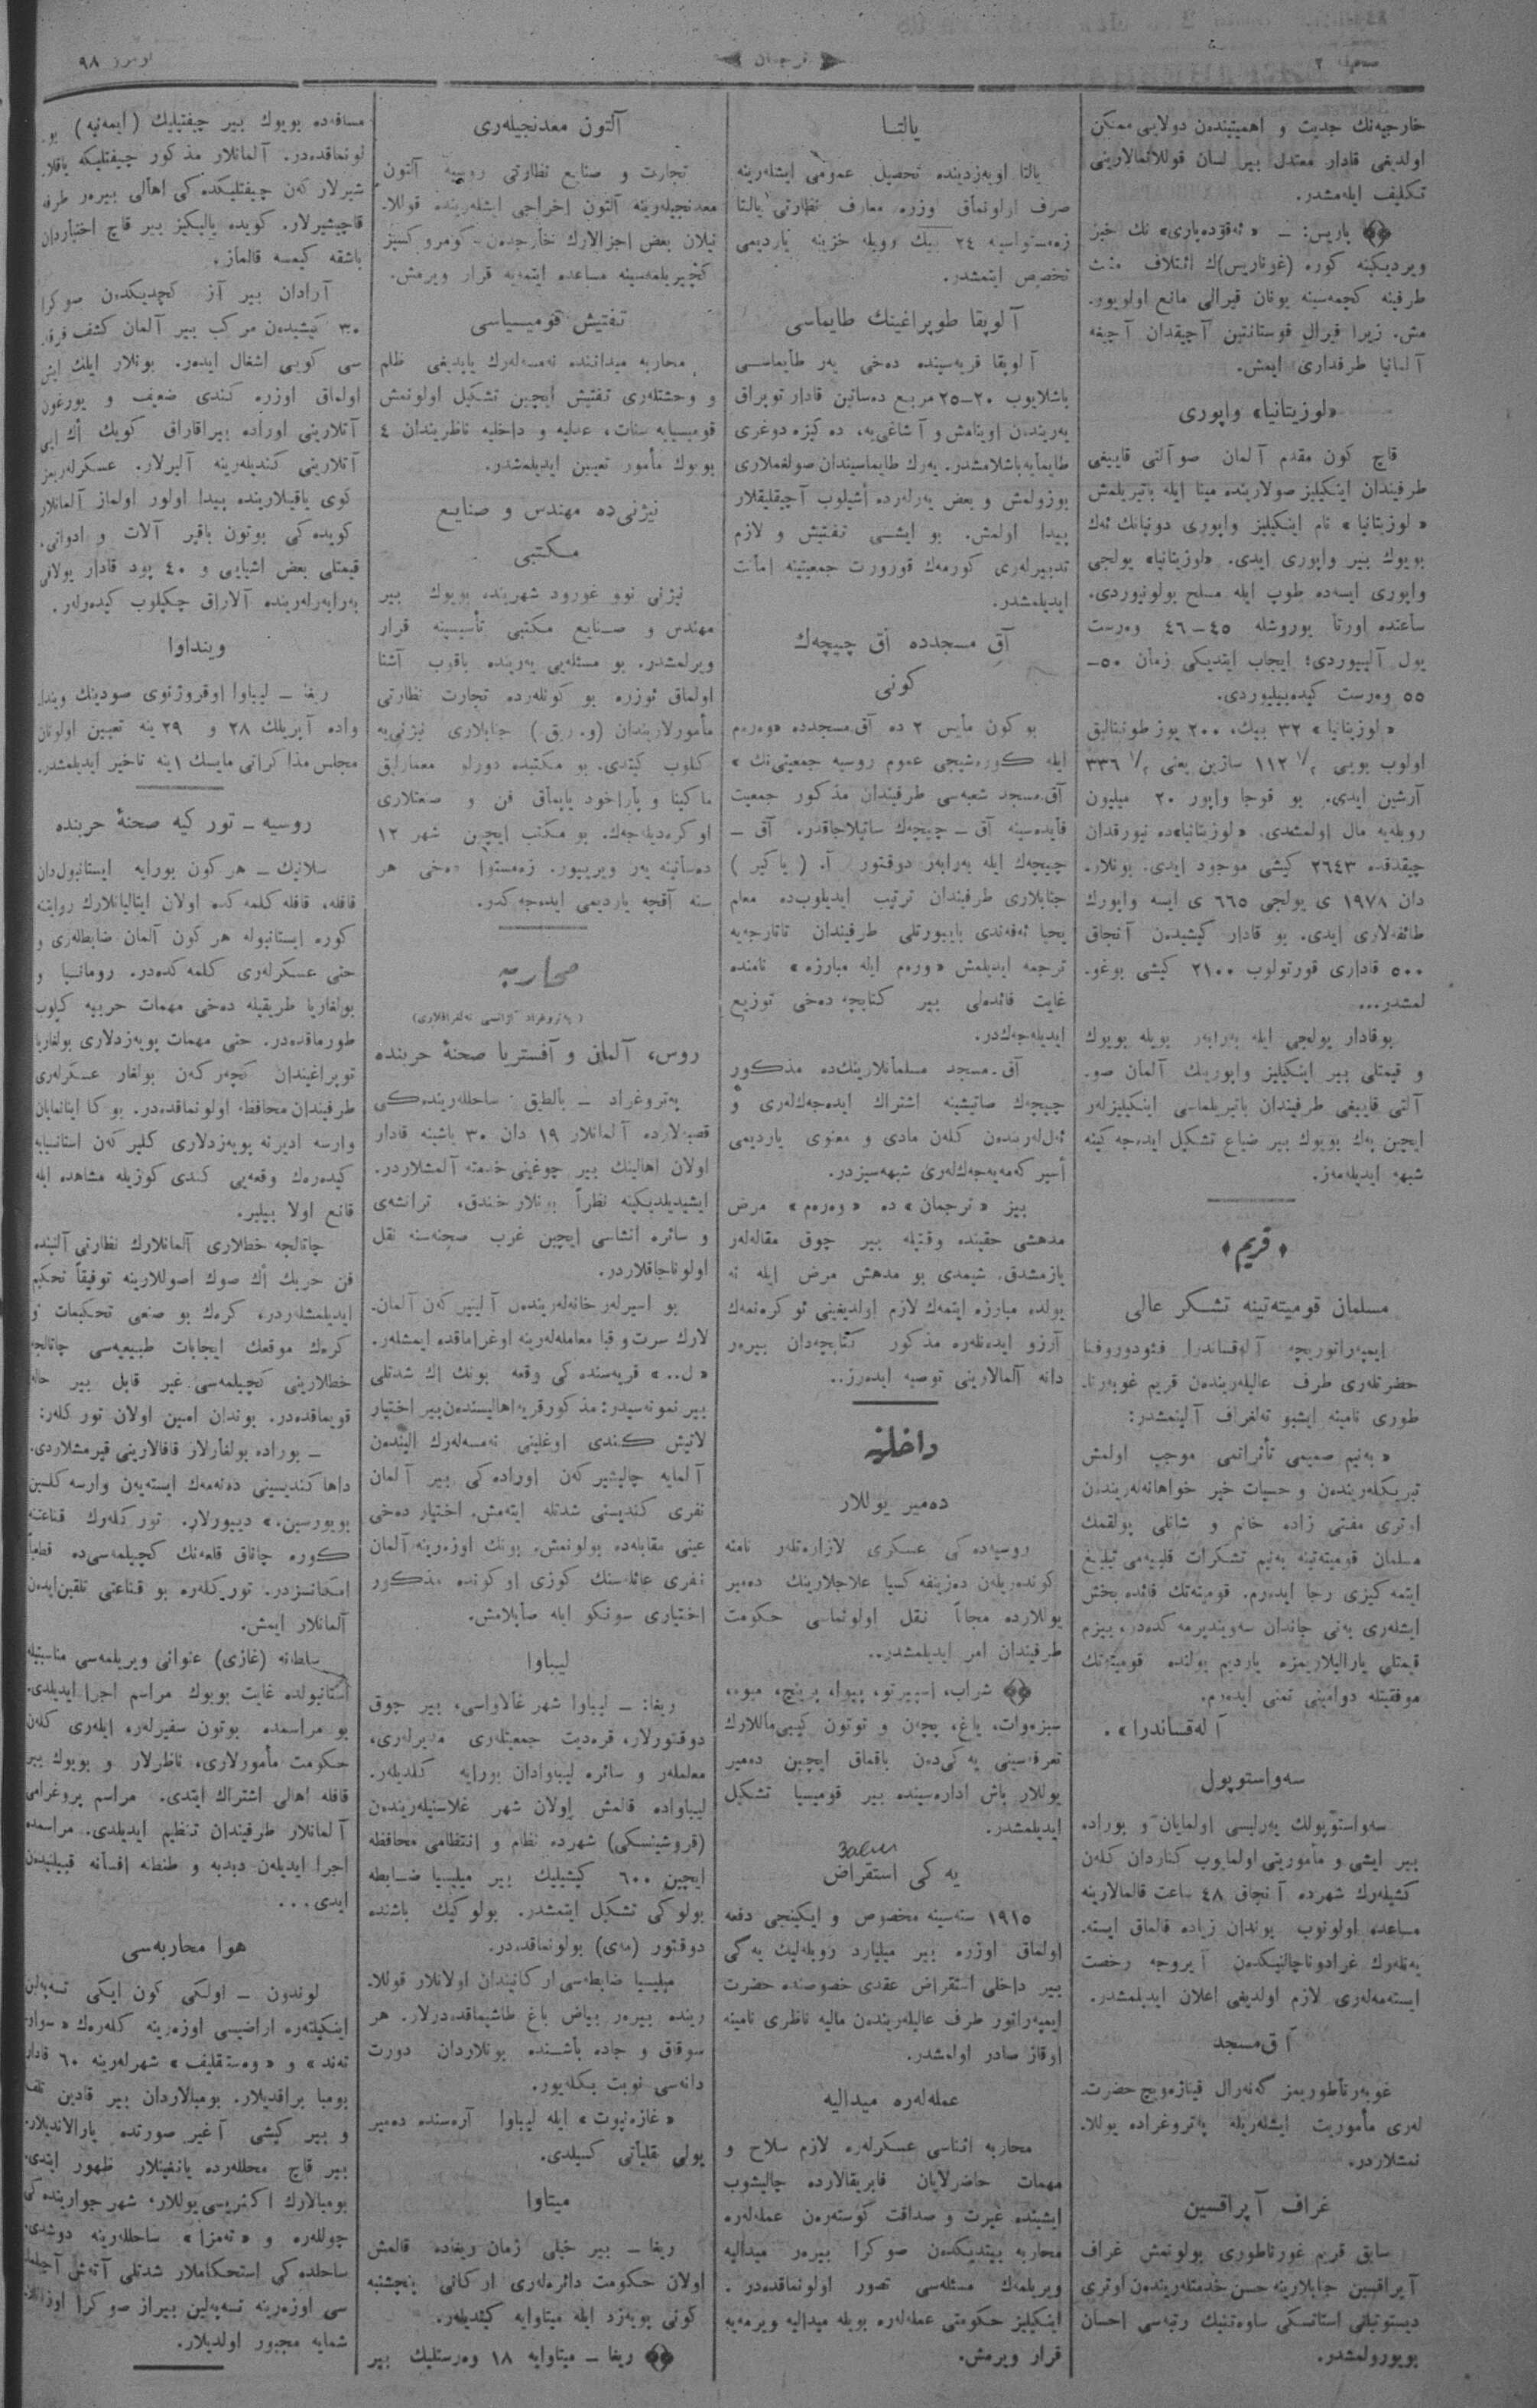 صحیفه ٢
ترجمان
نومرو ٩٨
خارجیه‌نك جدیت و اهمیتیندەن دولایی ممكن
اولدیغی قادار معتدل بیر لسان قوللانمالارینی
تكلیف ایله‌مشدر.
ویردیكینه كوره
طرفینه كچمه‌سینه یونان قیرالی مانع اولویور-
مش. زیرا قیرال قوستانتین آچیقدان آچیغه
آلمانیا طرفداری ایمش.
«لوزیتانیا» واپوری
قاچ كون مقدم آلمان صو آلتی قاییغی
طرفیندان اینكیلیز صولارینده مینا ایله باتیریلمش
«لوزیتانیا» نام اینكیلیز واپوری دونیانك ئەك
بویوك بیر واپوری ایدی. «لوزیتانیا» یولجی
واپوری ایسەده طوپ ایله مسلح بولونیوردی.
ساعتده اورتا یوروشله ٤٥–٤٦ وەرست
یول آلییوردی؛ ایجاب ایتدیكی زمان ٥٠–
٥٥ وەرست كیدەبیلیوردی.
«لوزیتانیا» ٣٢ بیك، ٢٠٠ یوز طونیتالیق
روبلەیه مال اولمشدی. «لوزیتانیا»ده نیورقدان
چیقدقده ٢٦٤٣ كیشی موجود ایدی. بونلار-
دان ١٩٧٨ ی یولجی ٦٦٥ ی ایسه واپورك
طائفه‌لاری ایدی. بو قادار كیشیدەن آنجاق
٥٠٠ قاداری قورتولوب ٢١٠٠ كیشی بوغو-
لمشدر...
بوقادار یولجی ایله بەرابەر بویله بویوك
و قیمتلی بیر اینكیلیز واپورینك آلمان صو-
آلتی قاییغی طرفیندان باتیریلماسی اینكیلیزلەر
ایچین پەك بویوك بیر ضیاع تشكیل ایدەجەكینه
شبهه ایدیلەمەز.
﴿قریم﴾
مسلمان قومیتەتینه تشكر عالی
ایمپەراتوریچه آلەقساندرا فئودوروفنا
حضرتلەری طرف عالیلەریندەن قریم غوبەرنا-
طوری نامینه ایشبو تەلغراف آلینمشدر:
«بەنیم صمیمی تأثراتمی موجب اولمش
تبریكلەریندەن و حسیات خیر خواهانەلەریندەن
اوتری مفتی زاده خانم و شانلی بولقمك
مسلمان قومیتەتینه بەنیم تشكرات قلبیەمی تبلیغ
ایتمەكیزی رجا ایدەرم. قومیتەتك فائده بخش
ایشلەری بەنی جاندان سەویندیرمەكدەدر، بیزم
قیمتلی یارالیلاریمزه یاردیم یولنده قومیتەتك
موفقیتله دوامینی تمنی ایدەرم.
آلەقساندرا».
سەواستوپول
سەواستوپولك یەرلیسی اولمایان و بوراده
بیر ایشی و مأموریتی اولمایوب كناردان كلەن
كشیلەرك شهرده آنجاق ٤٨ ساعت قالمالارینه
مساعده اولونوب بوندان زیاده قالماق ایستە-
یەنلەرك غرادوناچالنیكدەن آیروجه رخصت
ایستەمەلەری لازم اولدیغی اعلان ایدیلمشدر.
آق‌مسجد
غوبەرناطوریمز گەنەرال قنیازەویچ حضرت-
لەری مأموریت ایشلەریله پەتروغراده یوللا-
نمشلاردر.
غراف آپراقسین
سابق قریم غوبرناطوری بولونمش غراف
آپراقسین جنابلارینه حسن خدمتلەریندەن اوتری
دیستویتیلنی استاتسكی ساوەتنیك رتبەسی احسان
بویورولمشدر.
یالتا
یالتا اویەزدینده تحصیل عمومی ایشلەرینه
صرف اولونماق اوزره معارف نظارتی یالتا
زەمستواسینه ٢٤ بیك روبله خزینه یاردیمی
تخصیص ایتمشدر.
آلوپقا طوپراغینك طایماسی
آلوپقا قریەسینده دەخی یەر طایماسی
باشلایوب ٢٠–٢٥ مربع دەساتین قادار توپراق
یەریندەن اوینامش و آشاغی‌یه، دەكیزه دوغری
طایمایه باشلامشدر. یەرك طایماسیندان صولغملاری
بوزولمش و بعض یەرلەرده أشیلوب آچیقلیقلار
پیدا اولمش. بو ایشی تفتیش و لازم
تدبیرلەری كورمەك قورورت جمعیتینه امانت
ایدیلمشدر.
آق مسجدده آق چیچەك
كونی
بو كون مایس ٢ ده آق‌مسجدده «وەرەم
ایله كورەشیجی عموم روسیه جمعیتی‌نك»
آق‌مسجد شعبه‌سی طرفیندان مذكور جمعیت
فایدەسینه آق – چیچەك ساتیلاجاقدر. آق –
چیچەك ایله بەرابەر دوقتور آ.
جنابلاری طرفیندان ترتیب ایدیلوب‌ده معلم
یحیا ئەفەندی بایبورتلی طرفیندان تاتارجەیه
ترجمه ایدیلمش «ورەم ایله مبارزه» نامنده
غایت فائدەلی بیر كتابچه دەخی توزیع
ایدیلەجەكدر.
آق‌مسجد مسلمانلارینك‌ده مذكور
چیچەك صاتیشینه اشتراك ایدەجەكلەری و
ئەل‌لەریندەن كلەن مادی و معنوی یاردیمی
أسیركەمەیەجەكلەری شبهەسیزدر.
بیز «ترجمان» ده «وەرەم» مرض
مدهشی حقینده وقتیله بیر چوق مقالەلەر
یازمشدق. شیمدی بو مدهش مرض ایله نه
یولده مبارزه ایتمەك لازم اولدیغینی ئوكرەنمەك
آرزو ایدەنلەره مذكور كتابچەدان بیرەر
دانه آلمالارینی توصیه ایدەرز..
داخلیه
دەمیر یوللار
روسیەدەكی عسكری لازارەتلەر نامنه
یوللارده مجاناً نقل اولونماسی حكومت
طرفیندان امر ایدیلمشدر..
سبزەوات، یاغ، پیچەن و توتون كیبی ماللارك
تعرفەسینی یەكیدەن باقماق ایچین دەمیر
یوللار باش ادارەسینده بیر قومیسیا تشكیل
ایدیلمشدر.
Заем
یەكی استقراض
١٩١٥ سنه‌سینه مخصوص و ایكینجی دفعه
اولماق اوزره بیر میلیارد روبلەلیك یەكی
بیر داخلی استقراض عقدی خصوصنده حضرت
ایمپەراتور طرف عالیلەریندەن مالیه ناظری نامینه
اوقاز صادر اولمشدر.
عملەلەره میدالیه
محاربه اثناسی عسكرلەره لازم سلاح و
مهمات حاضرلایان فابریقالارده چالیشوب
ایشینده غیرت و صداقت كوستەرەن عملەلەره
محاربه بیتدیكدەن صوكرا بیرەر میدالیه
ویریلمەك مسئلەسی تصور اولونماقدەدر.
اینكیلیز حكومتی عملەلەره بویله میدالیه ویرمەیه
قرار ویرمش.
آلتون معدنجیلەری
تجارت و صنایع نظارتی روسیه آلتون
معدنجیلەرینه آلتون اخراجی ایشلەرینده قوللا-
نیلان بعض اجزالارك خارجدەن كومروكسیز
كچیریلمەسینه مساعده ایتمەیه قرار ویرمش.
تفتیش قومیسیاسی
محاربه میداننده نەمسەلەرك یاپدیغی ظلم
و وحشتلەری تفتیش ایچین تشكیل اولونمش
قومیسیایه سنات، عدلیه و داخلیه ناظریندان ٤
بویوك مأمور تعیین ایدیلمشدر.
نیژنی‌ده مهندس و صنایع
مكتبی
نیژنی نووغورود شهرینده بویوك بیر
مهندس و صنایع مكتبی تأسیسینه قرار
ویرلمشدر. بو مسئلەیی یەرینده یاقوب آشنا
اولماق ئوزره بو كونلەرده تجارت نظارتی
كلوب كیتدی. بو مكتبده دورلو معمارلیق
ماكینا و پاراخود یاپماق فن و صنعتلاری
اوكرەدیلەجەك. بو مكتب ایچون شهر ١٢
دەساتینه یەر ویرییور. زەمستوا دەخی هر
سنه آقچه یاردیمی ایدەجەكدر.
محاربه
(پەتروغراد آژانسی تەلغرافلاری)
روس، آلمان و آفستریا صحنۀ حربنده
پەتروغراد – بالطیق ساحللەریندەكی
قصبەلارده آلمانلار ١٩ دان ٣٠ یاشینه قادار
اولان اهالینك بیر چوغینی خدمته آلمشلاردر.
ایشیدیلدیكینه نظراً بونلار خندق، ترانشەی
و سائره انشاسی ایچین غرب صحنەسنه نقل
اولوناجاقلاردر.
بو اسیرلەر خانەلەریندەن آلینیركەن آلمان-
لارك سرت و قبا معاملەلەرینه اوغراماقده ایمشلەر.
«ل..» قریەسندەكی وقعه بونك اك شدتلی
بیر نمونەسیدر: مذكور قریه اهالیسندەن بیر اختیار
لاتیش كندی اوغلینی نەمسەلەرك الیندەن
آلمایه چالیشیركەن اورادەكی بیر آلمان
نفری كندیسنی شدتله ایتەمش. اختیار دەخی
عینی مقابلەده بولونمش. بونك اوزەرینه آلمان
اختیاری سونكو ایله صاپلامش.
لیباوا
ریغا: – لیباوا شهر غالاواسی، بیر چوق
دوقتورلار، قرەدیت جمعیتلەری مدیرلەری،
معلملەر و سائره لیباوادان بورایه كلدیلەر.
لیباواده قالمش اولان شهر غلاسنیلەریندەن
(قروشینسكی) شهرده نظام و انتظامی محافظه
ایچین ٦٠٠ كیشیلیك بیر میلیسیا ضابطه
بولوكی تشكیل ایتمشدر. بولوكیك باشنده
دوقتور (مەی) بولونماقدەدر.
میلیسیا ضابطەسی اركانیندان اولانلار قوللا-
رینده بیرەر بیاض باغ طاشیماقدەدرلار. هر
سوقاق و جاده باشنده بونلاردان دورت
دانەسی نوبت بكلەیور.
«غازەنپوت» ایله لیباوا آرەسنده دەمیر
یولی نقلیاتی كسیلدی.
میتاوا
ریغا – بیر خیلی زمان ریغاده قالمش
اولان حكومت دائرەلەری اركانی پنجشنبه
كونی پویەزد ایله میتاوایه كیتدیلەر.
ریغا – میتاوایه ١٨ وەرستلیك بیر
مسافەده بویوك بیر چیفتلیك (ایمەنیه) بو-
لونماقدەدر. آلمانلار مذكور چیفتلیكه یاقلا-
شیرلاركەن چیفتلیكدەكی اهالی بیرەر طرفه
قاچیشیرلار. كویده یالیكیز بیر قاچ اختیاردان
باشقه كیمسه قالماز.
آرادان بیر آز كچدیكدەن صوكرا
٣٠ كیشیدەن مركب بیر آلمان كشف فرقە-
سی كویی اشغال ایدەر. بونلار ایلك ایش
اولماق اوزره كندی ضعیف و یورغون
آتلارینی اوراده بیراقاراق كویك أك ایی
آتلارینی كندیلەرینه آلیرلار. عسكرلەریمز
كوی یاقینلارینده پیدا اولور اولماز آلمانلار
كویدەكی بوتون باقیر آلات و ادواتی،
قیمتلی بعض اشیایی و ٤٠ پود قادار یولافی
بەرابەرلەرینده آلاراق چكیلوب كیدەرلەر.
وینداوا
ریغا – لیباوا اوقروژنوی صودینك وینداـ
واده آپریلك ٢٨ و ٢٩ ینه تعیین اولونان
مجلس مذاكراتی مایسك ١ینه تاخیر ایدیلمشدر.
روسیه – توركیه صحنۀ حربنده
سلانیك – هركون بورایه ایستانبول‌دان
قافله، قافله كلمەكده اولان ایتالیانلارك روایتنه
كوره ایستانبوله هركون آلمان ضابطلەری و
حتی عسكرلەری كلمەكدەدر. رومانیا و
بولغاریا طریقیله دەخی مهمات حربیه كیلوب
طورماقدەدر. حتی مهمات پویەزدلاری بولغاریا
توپراغیندان كچەركەن بولغار عسكرلەری
طرفیندان محافظه اولونماقدەدر. بوكا اینانمایان
وارسه ادیرنه پویەزدلاری كلیركەن استانسیایه
كیدەرەك وقعەیی كندی كوزیله مشاهده ایله
قانع اولا بیلیر.
چاتالجه خطلاری آلمانلارك نظارتی آلتینده
فن حربك أك صوك اصوللارینه توفیقاً تحكیم
ایدیلمشلەردر، كرەك بو صنعی تحكیمات و
كرەك موقعك ایجابات طبیعیەسی چاتالجه
خطلارینی كچیلمەسی غیر قابل بیر حاله
قویماقدەدر. بوندان امین اولان توركلەر:
– بوراده بولغارلار قافالارینی قیرمشلاردی.
داها كندیسینی دەنەمەك ایستەیەن وارسه كلسین
بویورسین.» دییورلار. توركلەرك قناعتنه
كوره چاناق قلعەنك كچیلمەسی‌ده قطعیاً
امكانسزدر. توركلەره بو قناعتی تلقین ایدەن
آلمانلار ایمش.
سلطانه (غازی) عنوانی ویریلمەسی مناسبتیله
استانبولده غایت بویوك مراسم اجرا ایدیلدی.
بو مراسمده بوتون سفیرلەر، ایلەری كلەن
حكومت مأمورلاری، ناظرلار و بویوك بیر
قافله اهالی اشتراك ایتدی. مراسم پروغرامی
آلمانلار طرفیندان تنظیم ایدیلدی. مراسمده
اجرا ایدیلەن دبدبه و طنطنه افسانه قبیلیندەن
ایدی...
هوا محاربەسی
لوندون – اولكی كون ایكی تسەپەلین
اینكیلتەره اراضیسی اوزەرینه كلەرەك «سوأو-
تەند» و «وەستقلیف» شهرلەرینه ٦٠ قادار
بومبا براقدیلار. بومبالاردان بیر قادین تلف
و بیر كیشی آغیر صورتده یارالاندیلار.
بیر قاچ محللەرده یانغینلار ظهور ایتدی.
بومبالارك اكثریسی یوللار، شهر جوارینده‌كی
چوللەره و «تەمزا» ساحللەرینه دوشدی.
ساحلدەكی استحكاملار شدتلی آتەش آچلما-
سی اوزەرینه تسەپەلین بیراز صوكرا
شمایه مجبور اولدیلار.